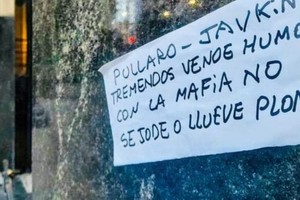 PULLARO - JAVKIN
TREMENDOS VENDE HUMO
CON LA MAFIA NO
SE JODE O LLUEVE PLOM